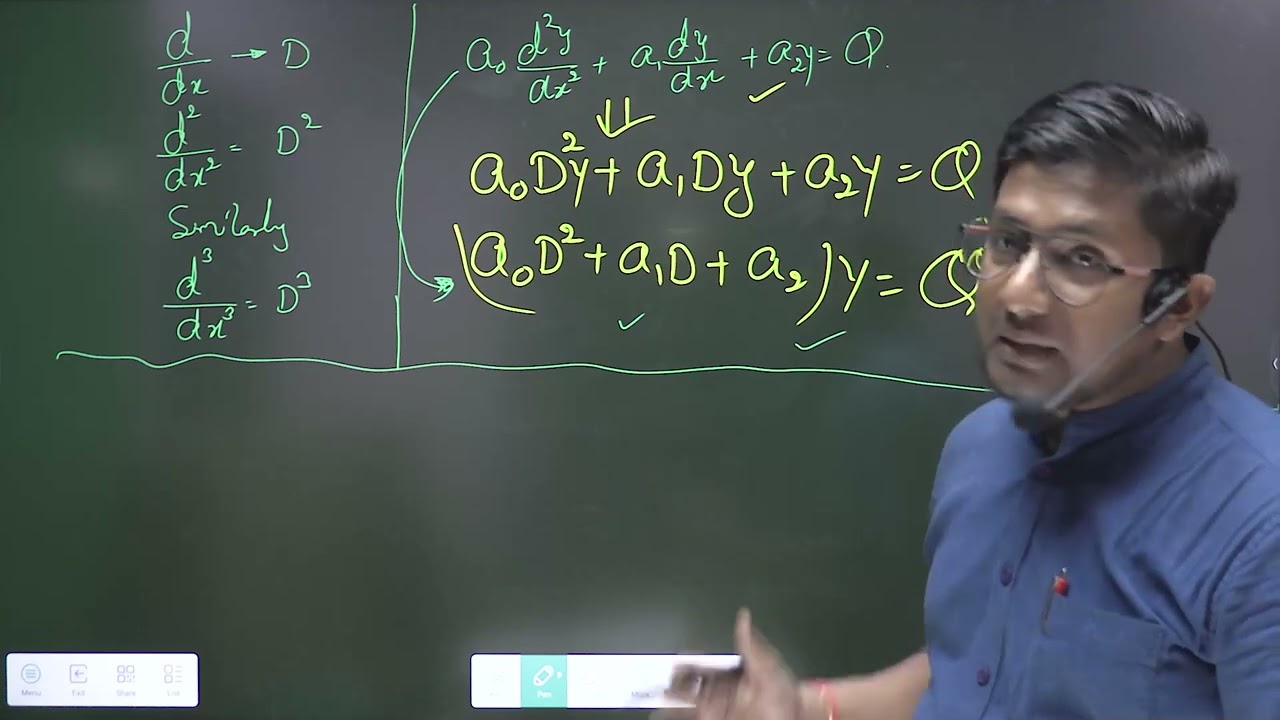 d/dx → D
d²/dx² = D²
Similarly
d³/dx³ = D³
a₀ d²y/dx² + a₁ dy/dx + a₂y = Q.
a₀D²y + a₁Dy + a₂y = Q
(a₀D² + a₁D + a₂) y = Q
Menu Exit Share List
Pen